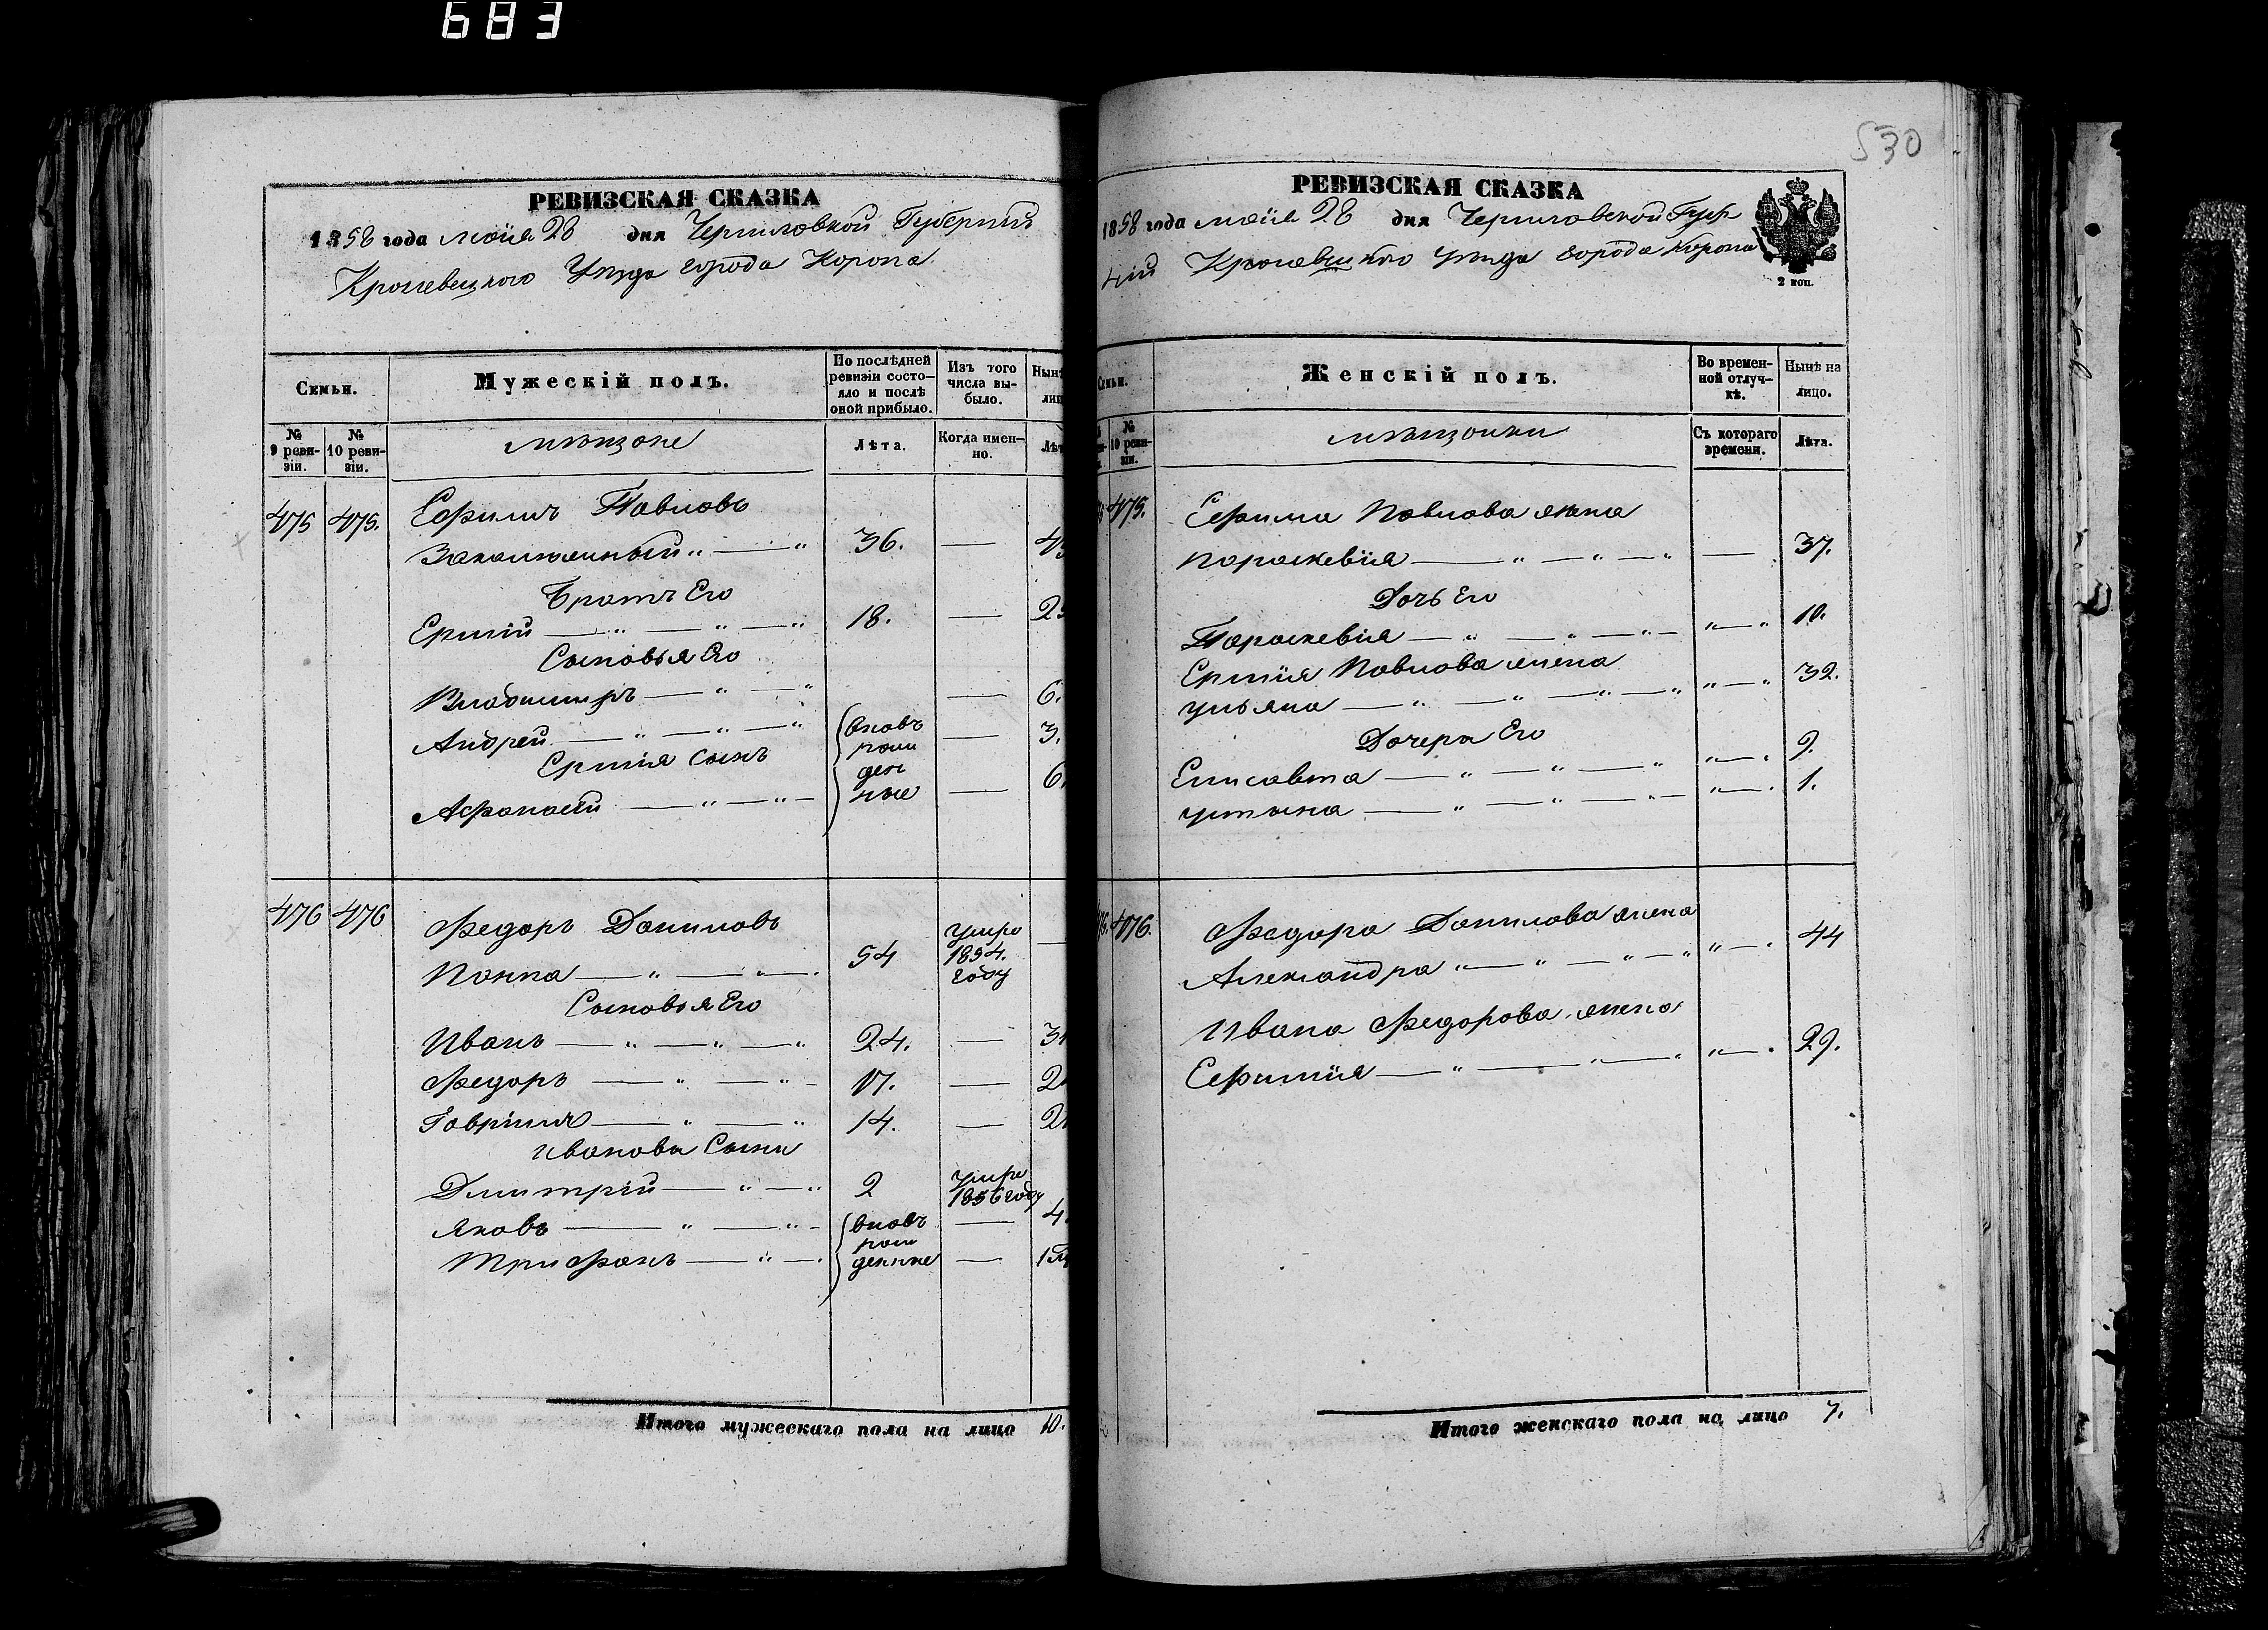 683
530
РЕВИЗСКАЯ СКАЗКА
1858 года маия 28 дня Черниговской Губернии
Кролевецкого Уезда города Коропа
Семьи.
Мужескій полъ.
По послѣдней ревизіи состояло и послѣ оной прибыло.
Изъ того числа выбыло.
Нынѣ
лиц
№ 9 ревизіи.
№ 10 ревизіи.
мѣщане
Лѣта.
Когда именно.
Лѣт
475 475. Ефимъ Павловъ
36. — 4
Братъ Его
Ермій — " — " — " 18. — 2
Сыновья Его
Владимиръ — " — " — 6.
Андрей — " — " — " вновь рож — 3.
Ермія Сынъ
Афанасий — " — " — ден ные — 6
476 476 Федоръ Даниловъ
Попка — " — " — . 54 умре 1854. году —
Сыновья Его
Иванъ — " — " — " 24. — 3
Федоръ — " — " — 17. — 2
Гавріилъ — " — " 14. — 2
Ивановы Сыны
Дмитрій — " — " 2 умре 1856 году
Яковъ — " — " — вновь рож — 4.
Трифонъ — " — . денные — 1
Итого мужескаго пола на лицо 10.
РЕВИЗСКАЯ СКАЗКА
1858 года маия 28 дня Черниговской Губер
ний Кролевецкого уезда города Коропа
2 коп.
Семьи.
Женскій полъ.
Во временной отлучкѣ.
Нынѣ на лицо.
№ 10 ревизіи.
мѣщанки
Съ котораго времени.
Лѣта.
475. Ефима Павлова жена
Параскевія — " — " — " — 37.
Дочь Его
Параскевія — " — " — " — " — " 10.
Ермія Павлова жена
Ульяна — " — " — " — " " — " 32.
Дочери Его
Елисавета — " — " — " " — " 9.
Устина — " — " — " — " — " 1.
476. Федора Данилова жена
Александра " — " — " — " " — " 44
Ивана Федорова жена
Ефимия — " — " — " " — " 29.
Итого женскаго пола на лицо 7.